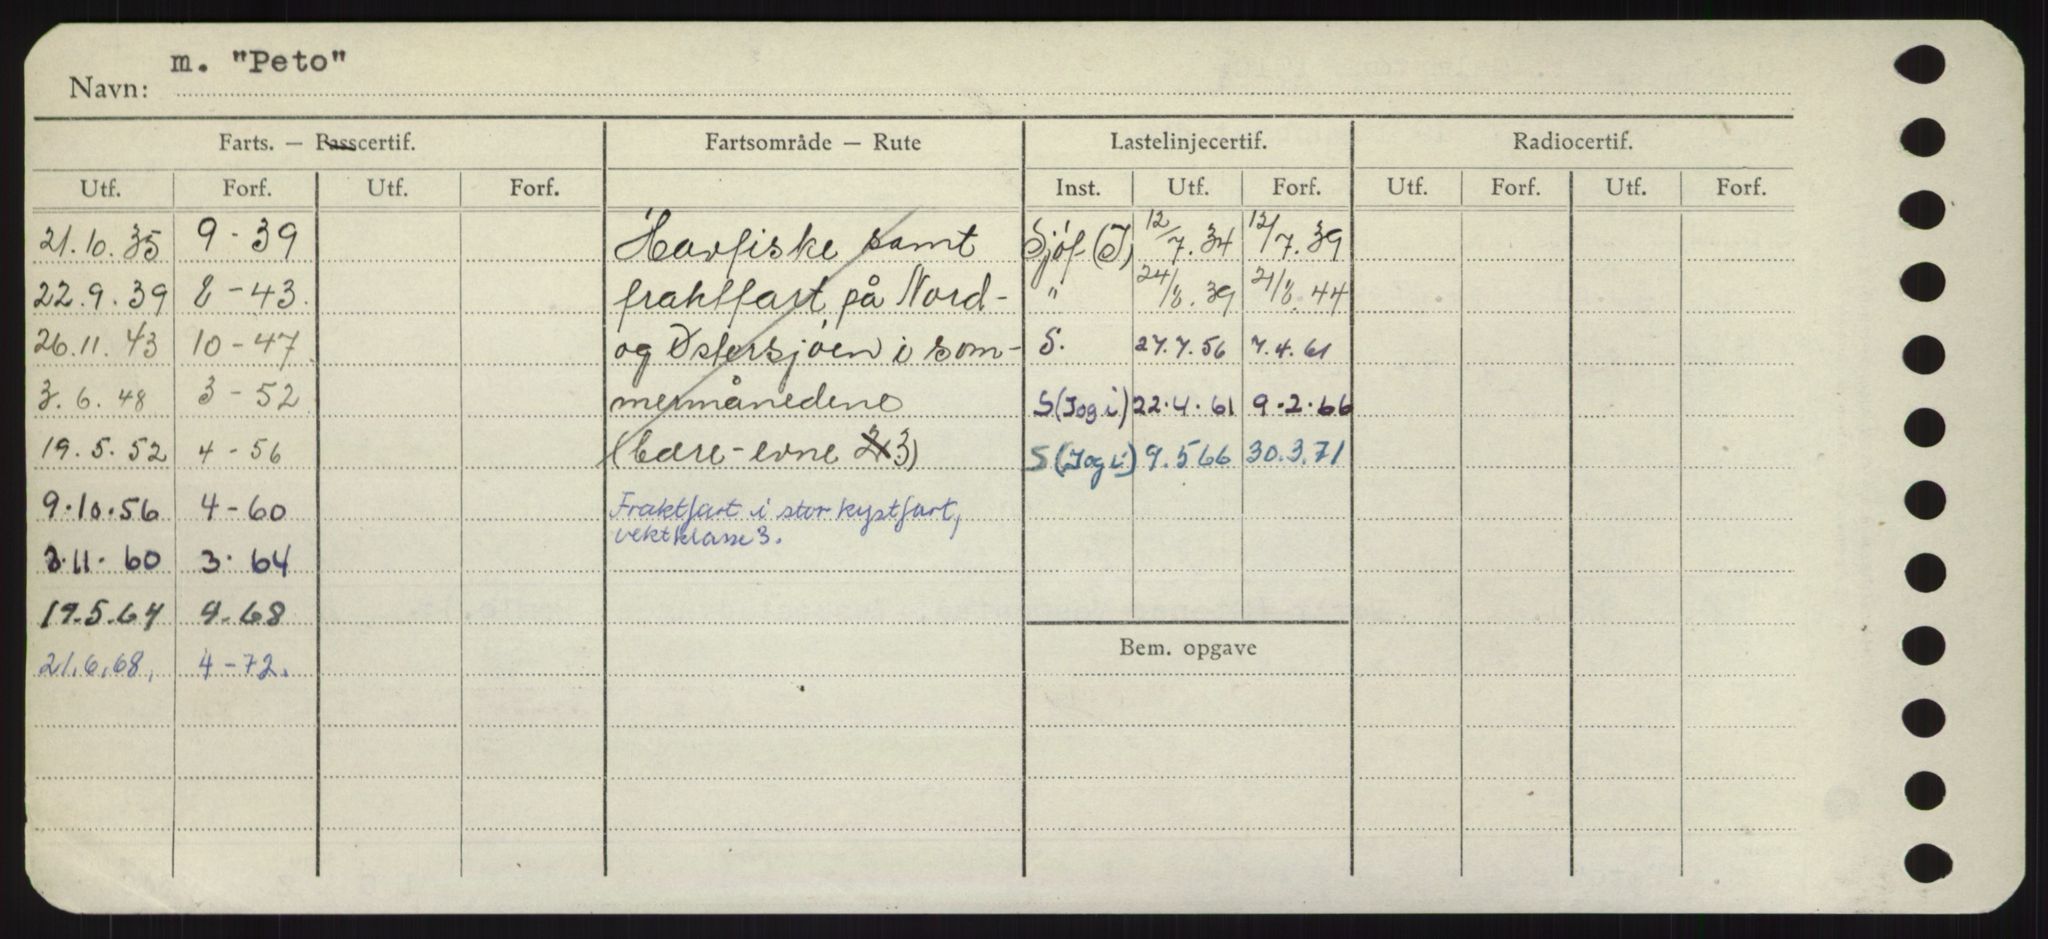 m. "Peto"
Navn:
Farts. — Passcertif. Fartsområde — Rute Lastelinjecertif. Radiocertif.
Utf. Forf. Utf. Forf. Inst. Utf. Forf. Utf. Forf. Utf. Forf.
21.10.35 9-39 Havfiske samt Sjöf (I) 12/7.34 12/7.39
22.9.39 8-43. fraktfart på Nord- " 24/8.39 21/8.44
26.11.43 10-47 og Østersjøen i som- S. 27.7.56 7.4.61
3.6.48 3-52 mermånedene S(Iog i) 22.4.61 9.2.66
19.5.52 4-56 (bære-evne 2 3) S(Iog i) 9.5 66 30.3.71
9.10.56 4-60 Fraktfart i stor kystfart,
vektklasse 3.
3.11.60 3.64
19.5.64 4.68
Bem. opgave
21.6.68. 4-72.